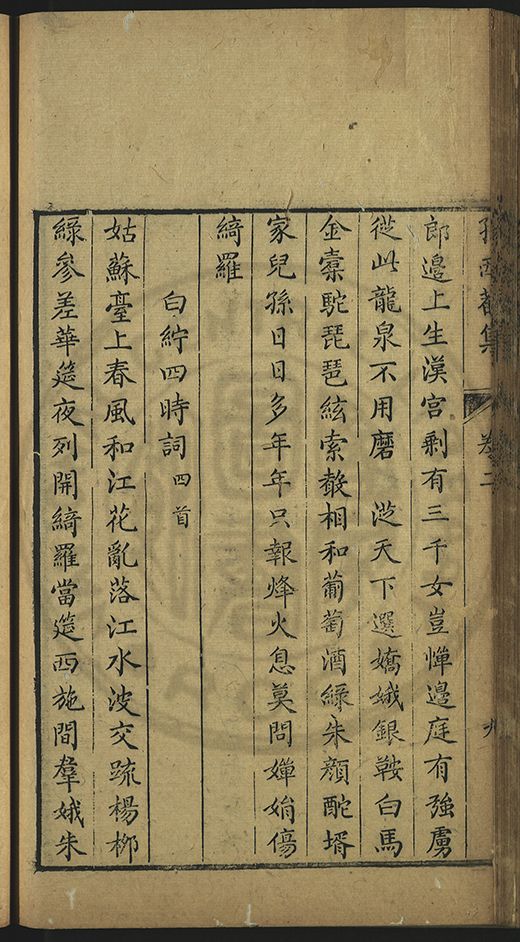 西菴集 卷二 九
郎邉上生漢宫剩有三千女豈憚邉庭有強虜
從此龍泉不用磨 從天下選嬌娥銀鞍白馬
金橐駝琵琶絃索皷相和葡萄酒緑朱顔酡壻
家兒孫日日多年年只報烽火息莫問嬋娟傷
綺羅
白紵四時詞四首
姑蘇臺上春風和江花亂落江水波交疏楊栁
緑參差華筵夜列開綺羅當筵西施間羣娥朱